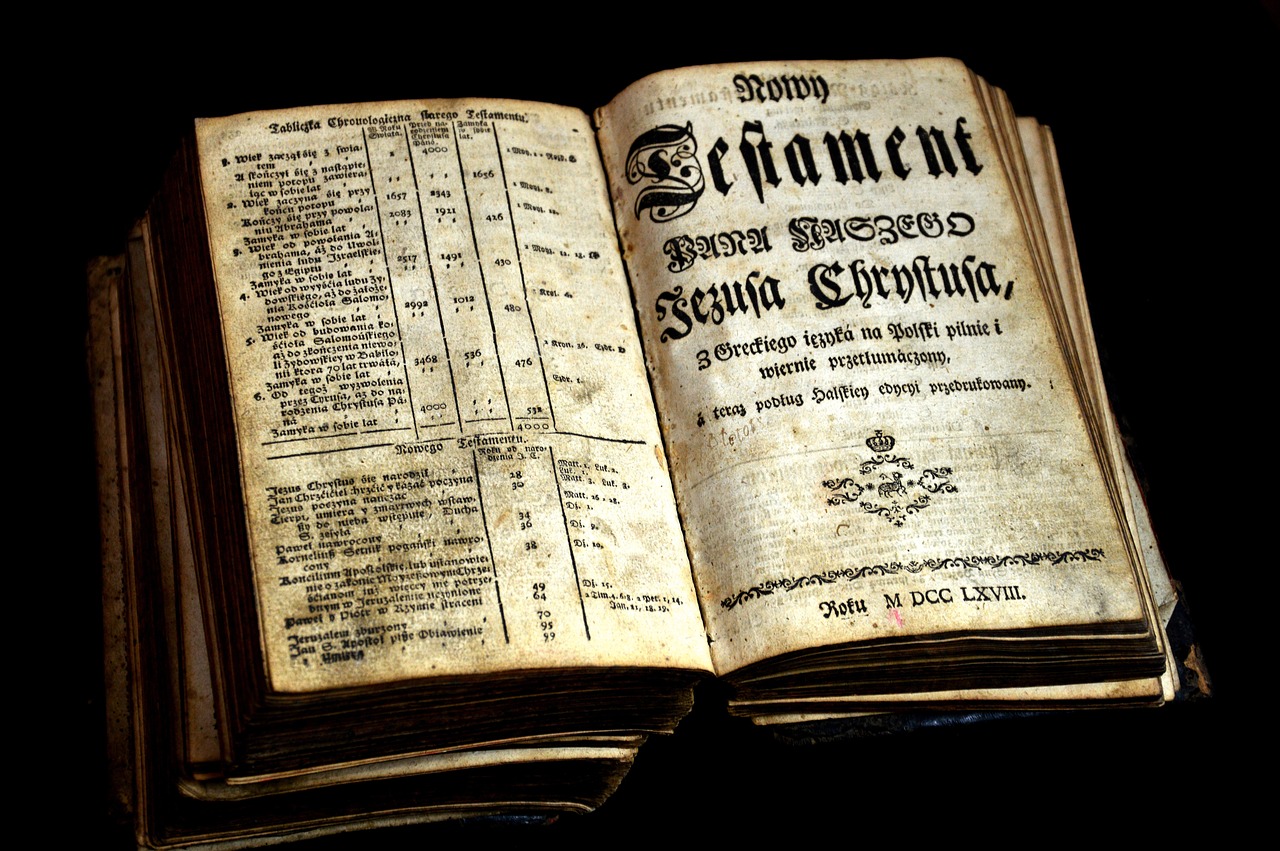 Tabliczka Chronologiczna starego Testamentu.
W Roku Swiata.
Przed narodzeniem Chrystusa Pana.
Zamyka w sobie lat.
1. Wiek zaczął się z światem 1 4000 1 Moy. 1
A skończył się z nastąpieniem potopu zawierając w sobie lat 1656 1 Moy.
2. Wiek zaczyna się przy końcu potopu 1657 2343
Kończy się przy powołaniu Abrahama 2083 1921 1 Moy.
Zamyka w sobie lat 426
3. Wiek od powołania Abrahama, aż do Uwolnienia ludu Izraelskiego z Egiptu 2517 1491 2 Moy. 12.
Zamyka w sobie lat 430
4. Wiek od wyyścia ludu Żydowskiego, aż do założenia Kościoła Salomonowego 2992 1012 1 Krol.
Zamyka w sobie lat 480
5. Wiek od budowania kościoła Salomońskiego aż do zkończenia niewoli Zydowskiey w Babilonii ktora 70 lat trwała, 3468 536 2 Kron. 36.
Zamyka w sobie lat 476 Ezdr. 1.
6. Od tegoż wyzwolenia przez Cyrusa, aż do narodzenia Chrystusa Pana 4000
Zamyka w sobie lat 532
4000
Nowego Testamentu.
Roku od narodzenia J. C.
Jezus Chrystus się narodził Matt. 1. Luk. 2.
Jan Chrzciciel chrzcić y kazać poczyna 28
Jezus poczyna nauczać 30
Cierpi, umiera y zmartwych wstaw. Matt. 26 - 28.
szy do nieba wstępuie, Ducha Dz. 1.
S. zsyła 34
Paweł nawrocony 36 Dz. 9.
Korneliusz Setnik pogański nawrocony 38 Dz. 10.
Koncilium Apostolskie
49 Dz. 15.
64
Paweł y Piotr w Rzymie straceni
Jeruzalem zburzony 70
Jan S. Apostoł pisze Obiawienie 95
y umiera 99
Nowy
Testament
PANA NASZEGO
Jezusa Chrystusa,
Z Greckiego ięzyká na Polski pilnie i
wiernie przetłumáczony,
á teraz podług Halskiey edycyi przedrukowany.
Roku M DCC LXVIII.